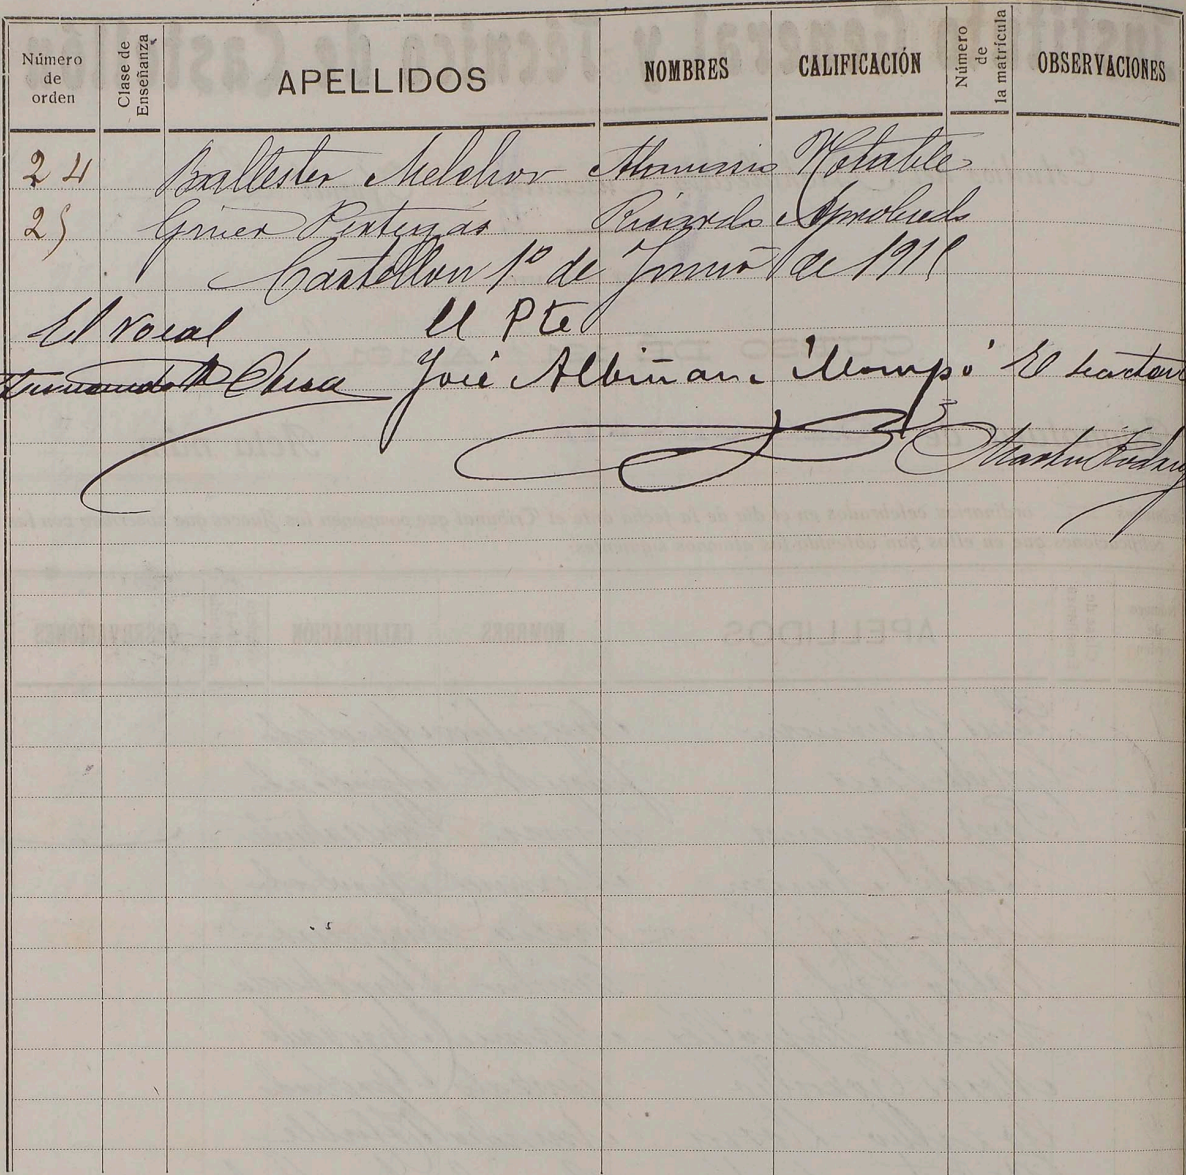 Número de orden Clase de Enseñanza APELLIDOS NOMBRES CALIFICACIÓN Número de la matrícula OBSERVACIONES
24 Ballester Melchor Notable
25 Giner Ricardo Aprobado
Castellon 1º de Junio de 191
El Vocal El Pte
José Albiñana Mompó El Secretario
Martin